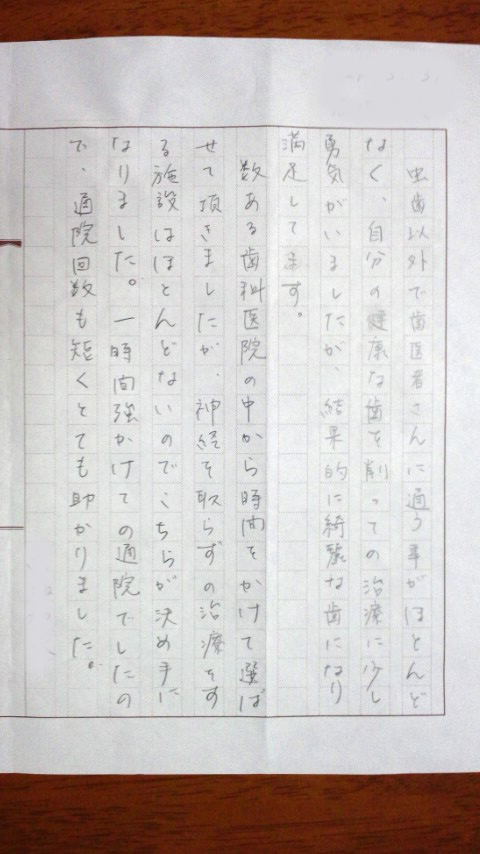 虫歯以外で歯医者さんに通う事がほとんど
なく、自分の健康な歯を削っての治療に少し
勇気がいるしたが、結果的に綺麗な歯になり
満足してます。
数ある歯科医院の中から時間をかけて選ば
せて頂きましたが、神経を取らずの治療をす
る施設はほとんどないのでこちらが決め手に
なりました。一時間強かけての通院でしたの
で、通院回数も短くとても助かりました。